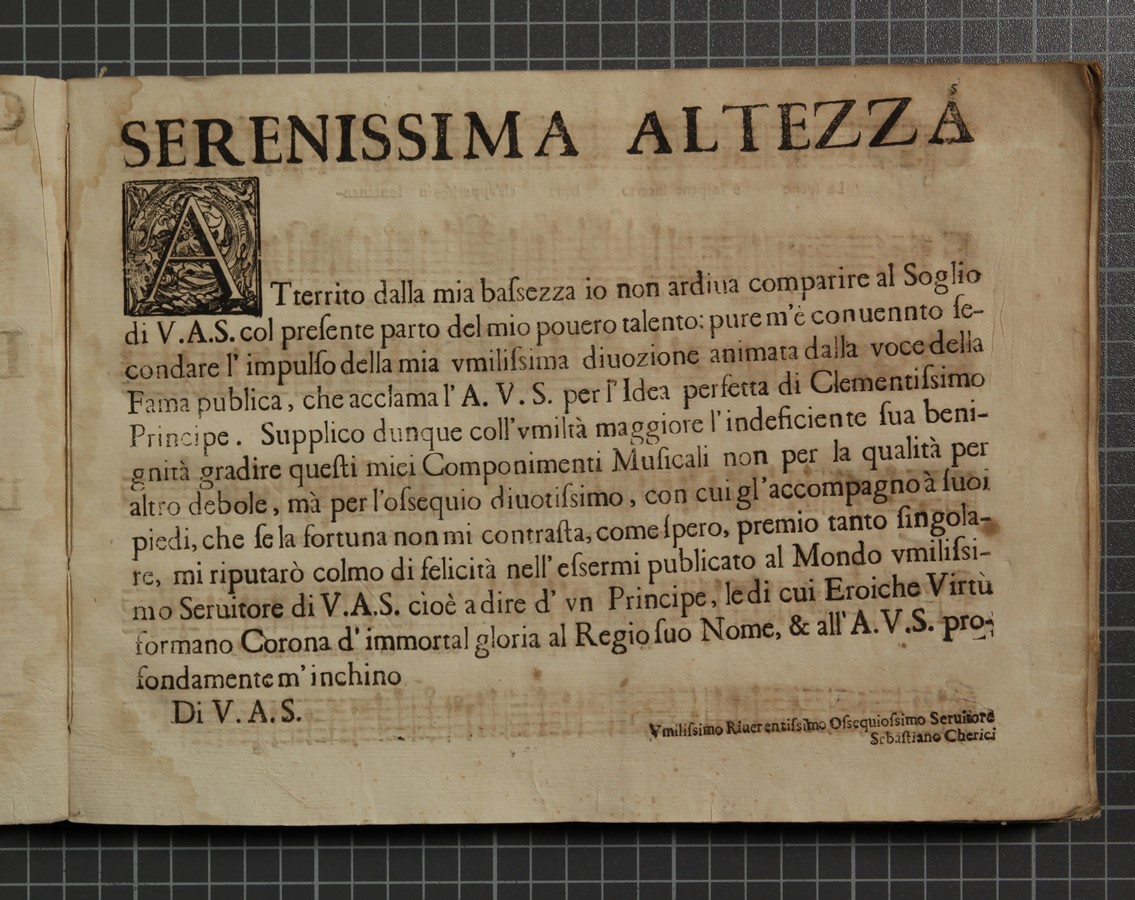 5
SERENISSIMA ALTEZZA
ATterrito dalla mia baſsezza io non ardiua comparire al Soglio
di V.A.S. col preſente parto del mio pouero talento: pure m'è conuennto ſe-
condare l' impulſo della mia vmiliſsima diuozione animata dalla voce della
Fama publica, che acclama l' A. V. S. per l'Idea perfetta di Clementiſsimo
Principe. Supplico dunque coll'vmiltà maggiore l'indeficiente ſua beni-
gnità gradire queſti miei Componimenti Muſicali non per la qualità per
altro debole, mà per l'oſsequio diuotiſsimo, con cui gl'accompagno à ſuoi
piedi, che ſe la fortuna non mi contraſta, come ſpero, premio tanto ſingola-
re, mi riputarò colmo di felicità nell' eſsermi publicato al Mondo vmiliſsi-
mo Seruitore di V.A.S. cioè a dire d' vn Principe, le di cui Eroiche Virtù
formano Corona d' immortal gloria al Regio ſuo Nome, & all' A.V.S. pro-
fondamente m' inchino
Di V. A. S.
Vmiliſsimo Riuerentiſsimo Oſsequioſsimo Seruitore
Sebaſtiano Cherici